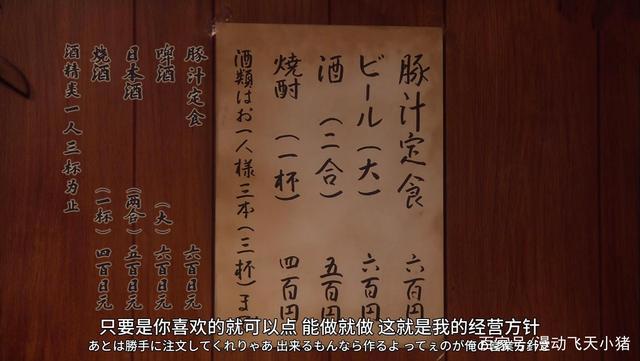 豚汁定食 六百円
ビール(大) 六百円
酒(二合) 五百円
焼酎(一杯) 四百円
酒類はお一人様三本(三杯)まで
豚汁定食 六百日元
啤酒(大) 六百日元
日本酒(两合) 五百日元
烧酒(一杯) 四百日元
酒精类一人三杯为止
只要是你喜欢的就可以点 能做就做 这就是我的经营方针
あとは勝手に注文してくれりゃあ 出来るもんなら作るよ ってえのが俺の営業方針さ
百家号/漫动飞天小猪